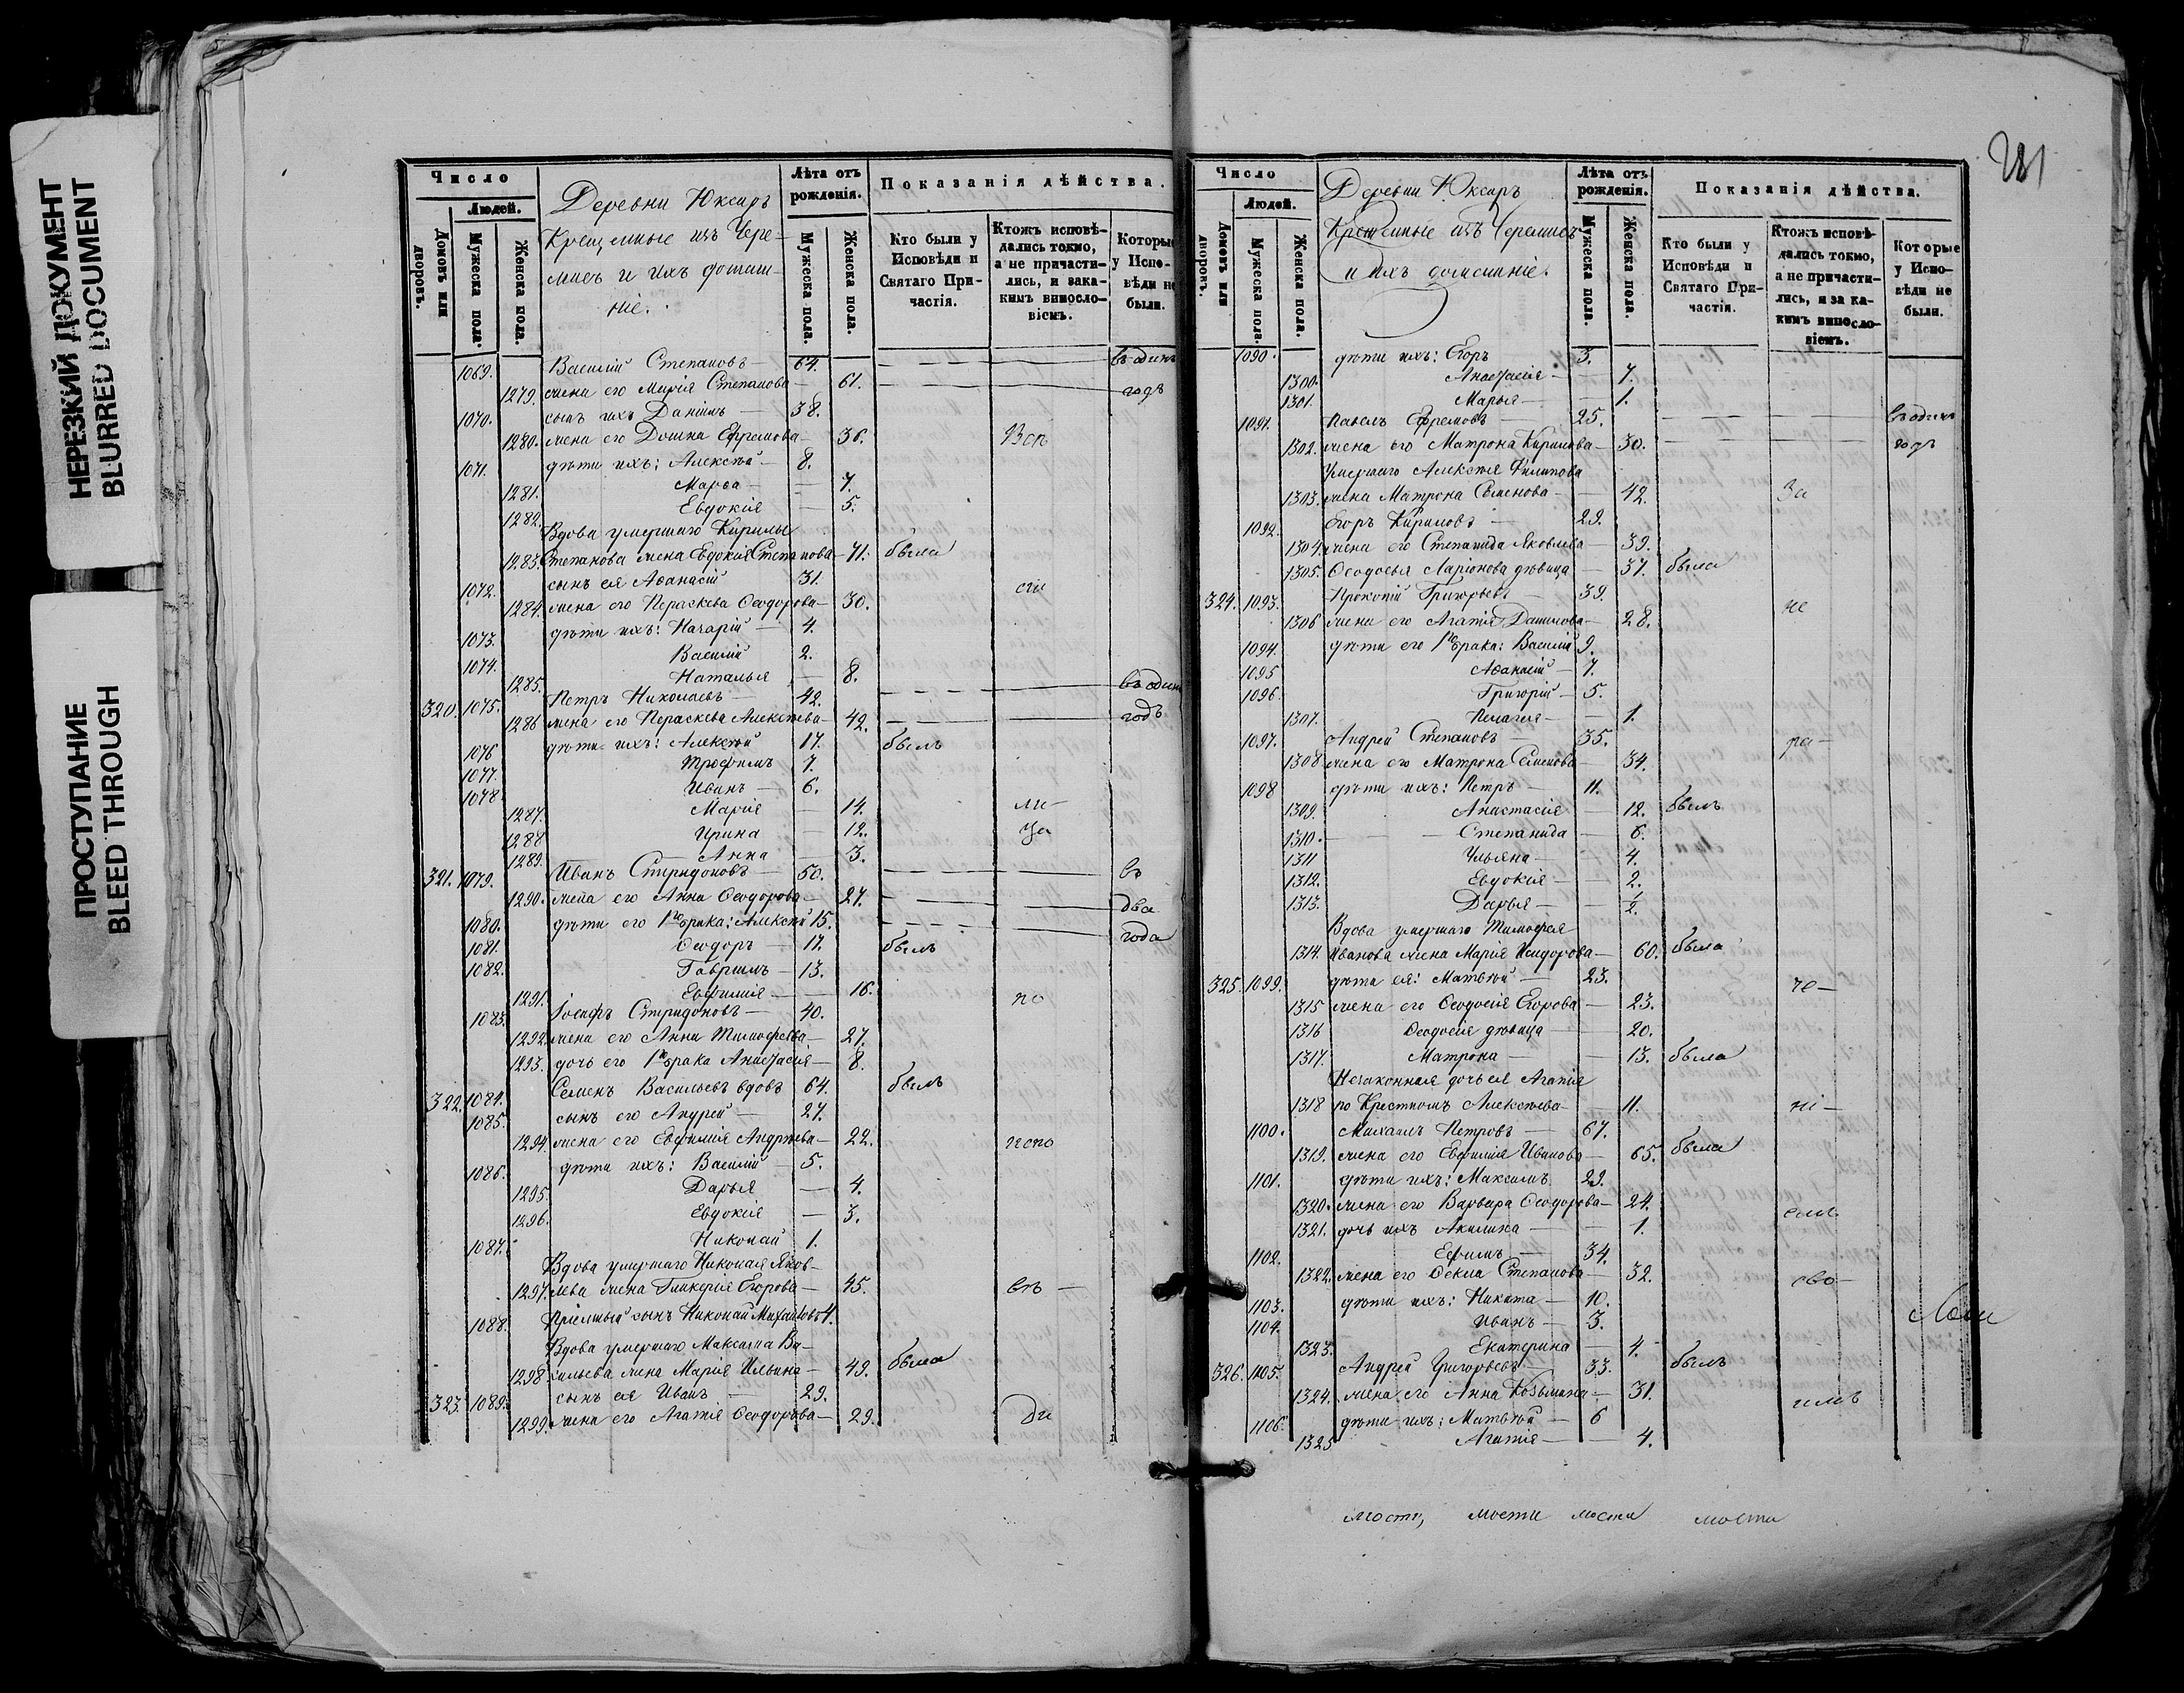 НЕРЕЗКИЙ ДОКУМЕНТ
BLURRED DOCUMENT
ПРОСТУПАНИЕ
BLEED THROUGH
Число
Людей.
Домовъ или дворовъ.
Мужеска пола.
Женска пола.
Деревни Юксаръ
Крещенные изъ Чере-
мисъ и ихъ домаш-
ніе.
Лѣта отъ рожденія.
Мужеска пола.
Женска пола.
Показанія дѣйства.
Кто были у Исповѣди и Святаго Причастія.
Ктожъ исповѣ-
дались токмо,
а не причасти-
лись, и зака-
кимъ винослo-
віемъ.
Которые
у Испо-
вѣди не
были.
1069. Василій Степановъ 64. въ одинъ
1279. жена его Марія Степанова 61. годъ
1070. сынъ ихъ Даніилъ 38.
1280. жена его Домна Ефремова 36.
1071. дѣти ихъ: Алексѣй 8.
1281. Марѳа 7.
1282. Евдокія 5.
Вдова умершаго Кирилы
1283. Степанова жена Евдокія Степанова 71. была
1072. сынъ ея Аѳанасій 31.
1284. жена его Параскева Ѳеодорова 30.
1073. дѣти ихъ: Назарій 4.
1074. Василій 2.
1285. Наталья 8.
320. 1075. Петръ Николаевъ 42. въ одинъ
1286 жена его Параскева Алексѣева 42. годъ
1076 дѣти ихъ: Алексѣй 17. былъ
1077. Трофимъ 7.
1078. Иванъ 6.
1287. Марія 14. ли
1288 Ирина 12. ца
1289. Анна 3.
321. 1079. Иванъ Спиридоновъ 50. въ
1290. жена его Анна Ѳеодорова 27. два
1080. дѣти его 1го брака: Алексѣй 15. года
1081. Ѳеодоръ 17. былъ
1082. Гавріилъ 13.
1291. Евфимія 16. по
1083. Іосифъ Спиридоновъ 40.
1292. жена его Анна Тимофеева 27.
1293. дочь его 1го брака Анастасія 8.
322. 1084. Семенъ Васильевъ вдовъ 64. былъ
1085. сынъ его Андрей 27.
1294. жена его Евфимія Андрѣева 22. испо
1086. дѣти ихъ: Василій 5.
1295. Дарья 4.
1296. Евдокія 3.
1087. Николай 1.
Вдова умершаго Николая Яков-
1297. лева жена Гликерія Егорова 45. вѣ
1088. Пріемный сынъ Николай Михайловъ 4.
Вдова умершаго Максима Ва-
1298 сильева жена Марія Ильина 49. была
323. 1089. сынъ ея Иванъ 29.
1299. жена его Агапія Ѳеодорова 29. ди
281
Число
Людей.
Домовъ или дворовъ.
Мужеска пола.
Женска пола.
Деревни Юксаръ
Крещенные изъ Черемисъ
и ихъ домашніе.
Лѣта отъ рожденія.
Мужеска пола.
Женска пола.
Показанія дѣйства.
Кто были у Исповѣди и Святаго Причастія.
Ктожъ исповѣ-
дались токмо,
а не причасти-
лись, и за ка-
кимъ винослo-
віемъ.
Которые
у Испо-
вѣди не
были.
1090. дѣти ихъ: Егоръ 3.
1300. Анастасія 7.
1301. Марья 1.
1091. Павелъ Ефремовъ 25. въ одинъ
1302. жена его Матрона Кирилова 30. годъ
Умершаго Алексѣя Филипова
1303. жена Матрона Семенова 42. За
1092. Егоръ Кириловъ 29.
1304. жена его Степанида Яковлева 39.
1305. Ѳеодосья Ларіонова дѣвица 37. была
324. 1093. Прокопій Григорьевъ 39. не
1306 жена его Агапія Данилова 28.
1094. дѣти его 1го брака: Василій 9.
1095 Аѳанасій 7.
1096. Григорій 5.
1307. Пелагея 1.
1097. Андрей Степановъ 35. ра
1308 жена его Матрона Семенова 34.
1098 дѣти ихъ: Петръ 11.
1309. Анастасія 12. былъ
1310. Степанида 6.
1311 Ульяна 4.
1312. Евдокія 2.
1313. Дарья 1/2.
Вдова умершаго Тимофея
1314. Иванова жена Марія Исидорова 60. была
325. 1099. дѣти ея: Матвѣй 23. че
1315 жена его Ѳеодосія Егорова 23.
1316 Ѳеодосія дѣвица 20.
1317. Матрона 13. была
Незаконная дочь ея Агапія
1318 по Крестномъ Алексѣева 11. ні
1100. Михаилъ Петровъ 67.
1319. жена его Евфимія Иванова 65. была
1101. дѣти ихъ: Максимъ 29.
1320. жена его Варвара Ѳеодорова 24.
1321. дочь ихъ Акилина 1.
1102. Ефимъ 34.
1322. жена его Ѳекла Степанова 32. сво
1103. дѣти ихъ: Никита 10.
1104. Иванъ 3.
1323. Екатерина 4.
326. 1105. Андрей Григорьевъ 33. былъ
1324. жена его Анна Козьмина 31.
1106. дѣти ихъ: Матвѣй 6
1325 Агапія 4.
мости, мости мости мости